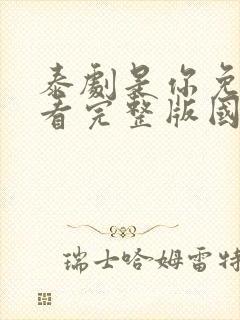 泰劇是你免
看完整版國
瑞士哈姆雷特